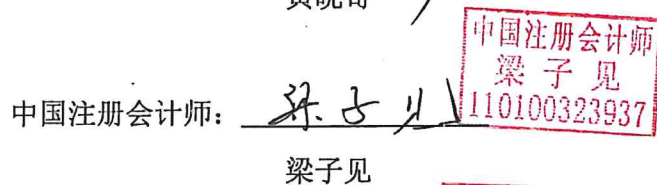 中国注册会计师
梁子见
110100323937
中国注册会计师：梁子见
梁子见